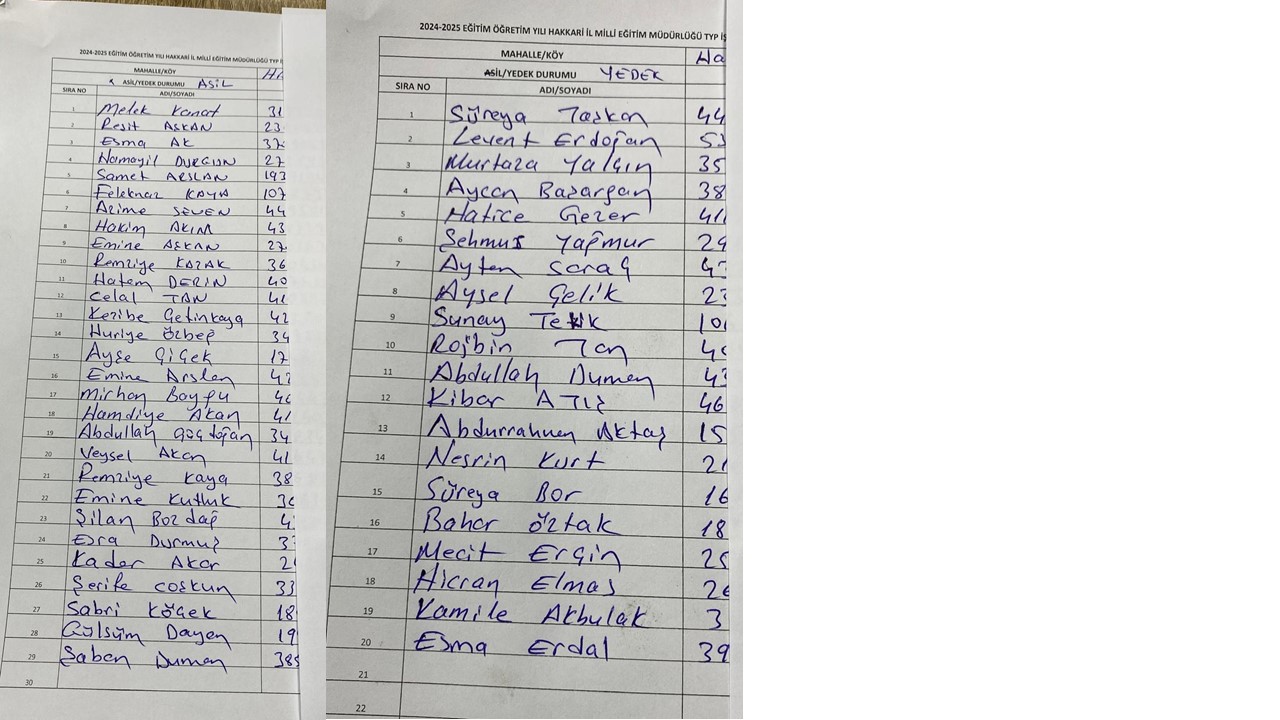 2024-2025 EĞİTİM ÖĞRETİM YILI HAKKARİ İL MİLLİ EĞİTİM MÜDÜRLÜĞÜ TYP İ
MAHALLE/KÖY
ASİL/YEDEK DURUMU ASİL
SIRA NO ADI/SOYADI
1 Melek Kanat 31
2 Reşit AŞKAN 23
3 Esma AK 37
4 Namayil DURGUN 27
5 Samet ARSLAN 193
6 Feleknaz KAYA 107
7 Azime SEVEN 44
8 Hakim AKIM 43
9 Emine AŞKAN 27
10 Remziye KAZAK 36
11 Hatem DERİN 40
12 Celal TAN 41
13 Kezibe Çetinkaya 42
14 Huriye Özbeğ 34
15 Ayşe Çiçek 17
16 Emine Arslan 42
17 Mirhan Boyğu
18 Hamdiye Akan 41
19 Abdullah Göçdoğan 34
20 Veysel Akan 41
21 Remziye Kaya 38
22 Emine Kutluk
23 Şilan Bozdağ 4
24 Esra Durmuş 3
25 Kader Akar 2
26 Şerife coşkun 33
27 Sabri KÖÇEK 18
28 Gülsüm Dayan 19
29 Şaban Duman 385
30
2024-2025 EĞİTİM ÖĞRETİM YILI HAKKARİ İL MİLLİ EĞİTİM MÜDÜRLÜĞÜ TYP İŞ
MAHALLE/KÖY Ha
ASİL/YEDEK DURUMU YEDEK
SIRA NO ADI/SOYADI
1 Süreya Taşkan 44
2 Levent Erdoğan 5
3 Murtaza Yalçın 35
4 Aycan Başargan 38
5 Hatice Gezer 41
6 Şehmus Yağmur 29
7 Ayten Saraç 4
8 Aysel Çelik 23
9 Sunay Tekik 10
10 Rojbin Tan 4
11 Abdullah Duman 43
12 Kibar ATIŞ 46
13 Abdurrahman Aktaş 15
14 Nesrin Kurt 2
15 Süreya Bor 16
16 Bahar Öztak 18
17 Mecit Ergin 25
18 Hicran Elmas 2
19 Kamile Akbulak 3
20 Esma Erdal 39
21
22